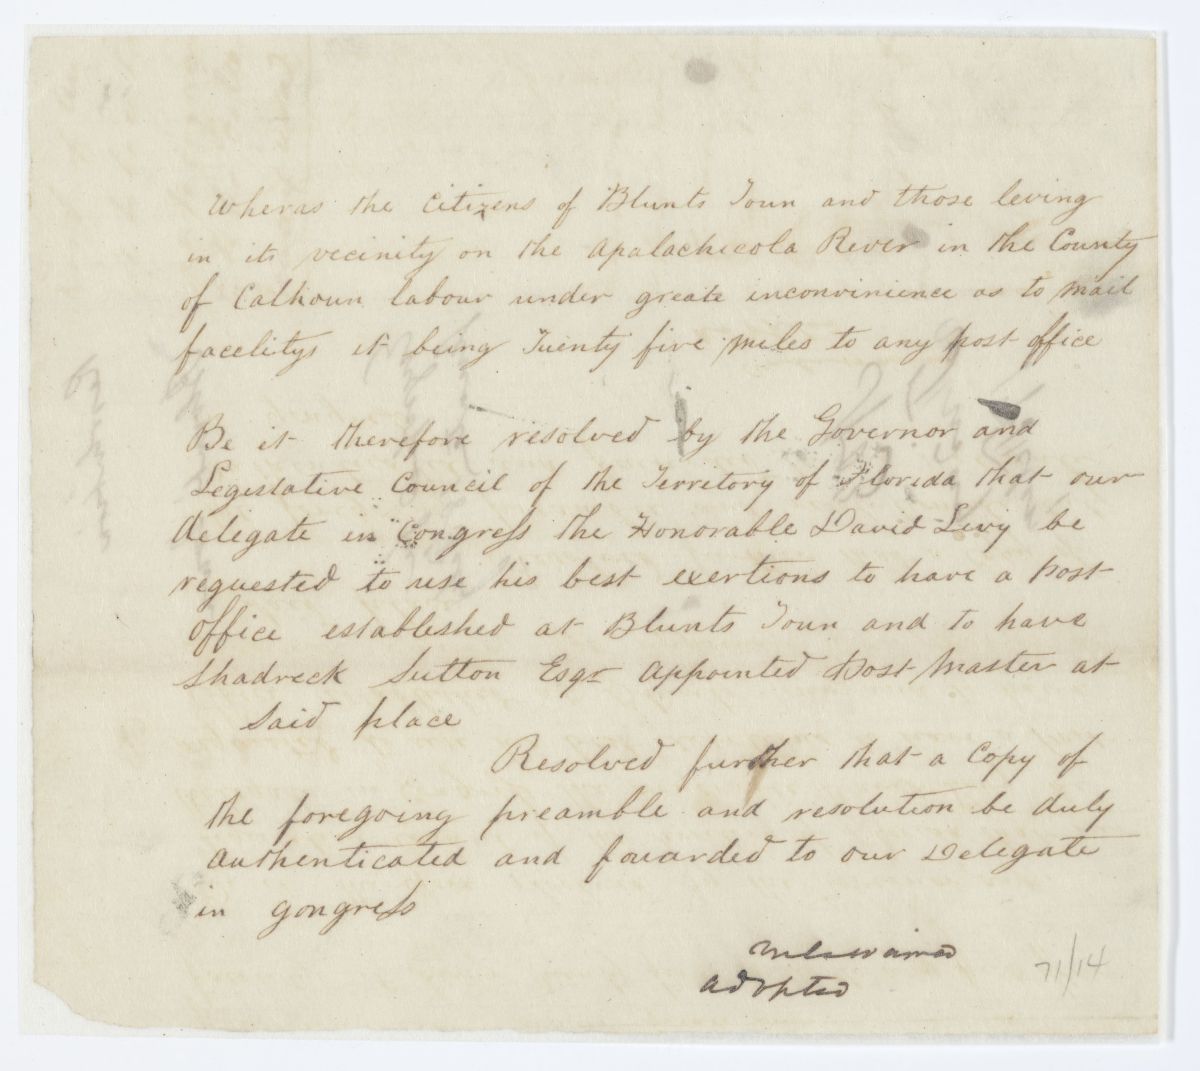 Wheras the Citizens of Blunts Toun and those leving
in its vecinity on the Apalachicola River in the County
of Calhoun labour under greate inconvinience as to mail
facelitys it being Twenty five miles to any post office
Be it therefore resolved by the Governor and
Legislative Council of the Territory of Florida that our
delegate in Congress the Honorable David Levy be
requested to use his best exertions to have a post
office established at Blunts Toun and to have
Shadreck Sutton Esqr Appointed Post Master at
Said place
Resolved further that a Copy of
the foregoing preamble and resolution be duly
Authenticated and fouarded to our Delegate
in gongress
adopted
71/14